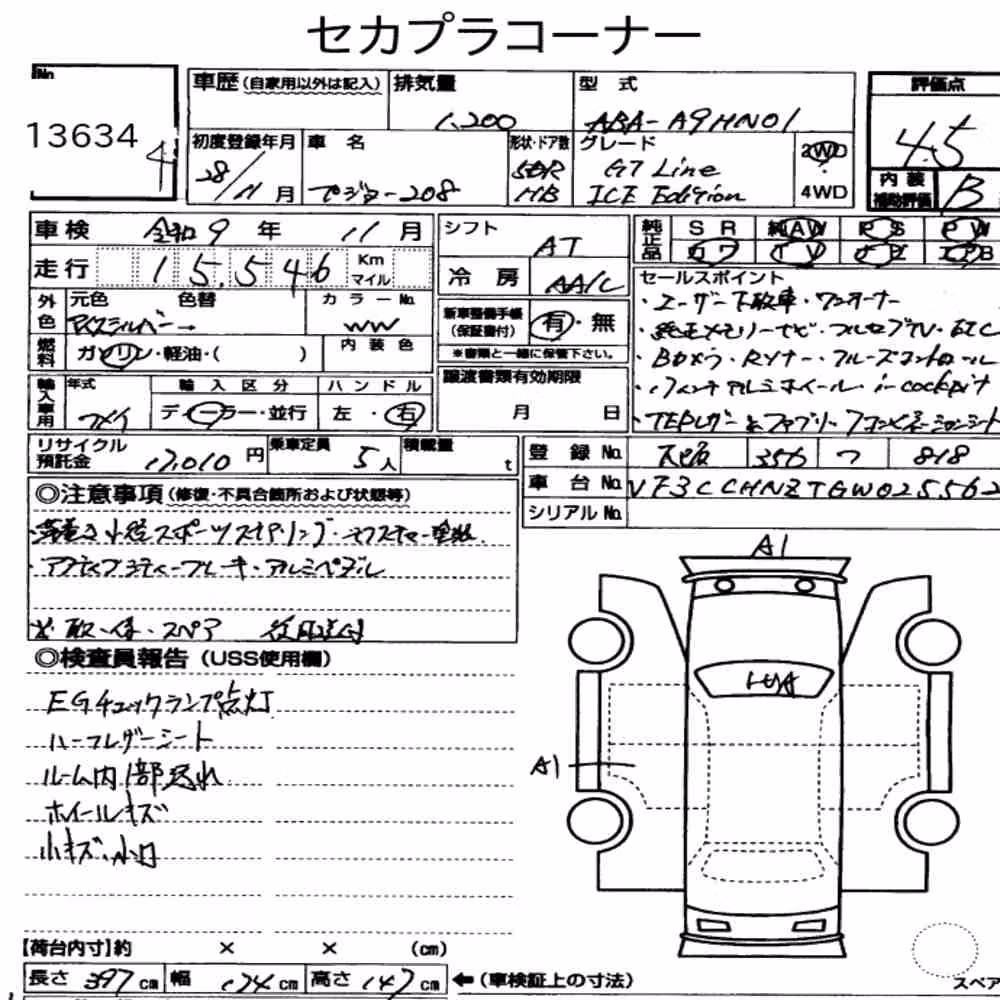 セカプラコーナー
No
13634
4
車歴 (自家用以外は記入) 排気量 型式 評価点
1,200 ABA-A9HN01 4.5
初度登録年月 車名 形状・ドア数 グレード 2WD
28/11月 プジョー208 5DR HB GT Line ICE Edition 4WD
内装補助評価 B
車検 令和9年11月 シフト AT 純正品 SR 純AW PS PW
走行 15,546 Km マイル 冷房 AA/C TV
外色 元色 色替 カラーNo. 新車整備手帳(保証書付) 有・無 セールスポイント
アイスシルバー→ WW ・ユーザー下取車・ワンオーナー
燃料 ガソリン・軽油・( ) 内装色 ※書類と一緒に保管下さい。 ・純正メモリーナビ・フルセグTV・ETC
・Bカメラ・
輸入車用 年式 輸入区分 ハンドル 譲渡書類有効期限 ・17インチアルミホイール・i-cockpit
ディーラー・並行 左・右 月 日 ・TEPレザー&ファブリック
リサイクル預託金 17,010円 乗車定員 5人 積載量 t 登録No. 大阪 356 つ 818
車台No. VF3CCHNZTGW025562
シリアルNo.
◎注意事項 (修復・不具合箇所および状態等)
・アクティブシティーブレーキ・アルミペダル
※取・保・スペア 後日送付
◎検査員報告 (USS使用欄)
EGチェックランプ点灯
ハーフレザーシート
ルーム内1部汚れ
ホイールキズ
小キズ、小凹
A1
A1
【荷台内寸】約 × × (cm)
長さ 397cm 幅 174cm 高さ 147cm ←(車検証上の寸法)
スペア